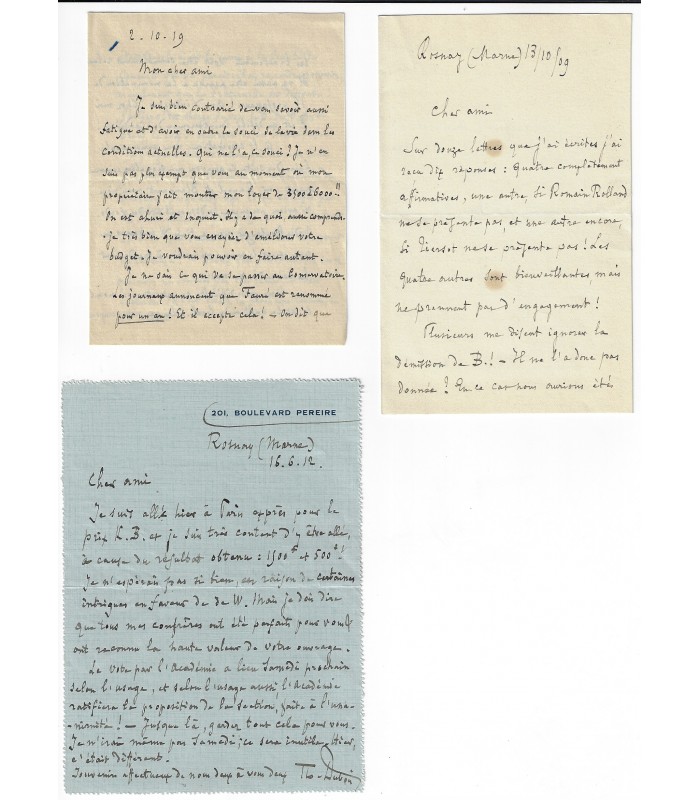 2-10-19
Mon cher ami
Je suis bien contrarié de vous savoir aussi
fatigué et d'avoir en outre le souci de la vie dans les
conditions actuelles. Qui ne l'a, ce souci ? Je n'en
suis pas plus exempt que vous au moment où mon
propriétaire fait monter mon loyer de 3500 à 6000
On est ahuri et inquiet. Il y a de quoi aussi comprends
-je très bien que vous essayiez d'améliorer votre
budget. Je voudrais pouvoir en faire autant.
Je ne sais ce qui va se passer au Conservatoire.
Les journaux annoncent que Fauré est renommé
pour un an ! Et il accepte cela ! — On dit que
Rosnay (Marne) 13/10/09
Cher ami
Sur douze lettres que j'ai écrites j'ai
reçu dix réponses : quatre complètement
affirmatives, une autre, si Romain Rolland
ne se présente pas, et une autre encore,
si Tiersot ne se présente pas ! Les
quatre autres sont bienveillantes mais
ne prennent pas d'engagement !
Plusieurs me disent ignorer la
démission de B. ! — Il ne l'a donc pas
donnée ? En ce cas nous aurions étés
201, BOULEVARD PEREIRE
Rosnay (Marne)
16.6.12.
Cher ami
Je suis allé hier à Paris exprès pour le
prix K. B. et je suis très content d'y être allé,
à cause du résultat obtenu : 1500f et 500f !
Je n'espérais pas si bien, en raison de certaines
intrigues en faveur de de W. Mais je dois dire
que tous mes confrères ont été parfaits pour vous et
ont reconnu la haute valeur de votre ouvrage.
Le vote par l'Académie a lieu Samedi prochain
selon l'usage, et selon l'usage aussi l'Académie
ratifiera la proposition de la section, faite à l'una-
-nimité ! — Jusque là, gardez tout cela pour vous.
Je n'irai même pas Samedi ; ce sera inutile. Hier,
c'était différent.
Souvenir affectueux de nous deux à vous deux Th. Dubois